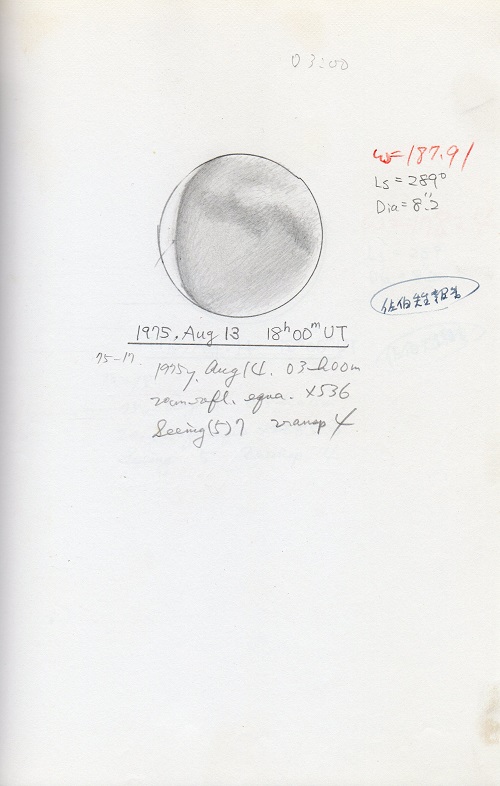 03:00
ω=187.91
Ls = 289°
Dia = 8."2
1975, Aug 13 18ʰ00ᵐ UT
75-17.
1975y, Aug 14. 03h00m
equa. ×536
Seeing(5)7 transp 4